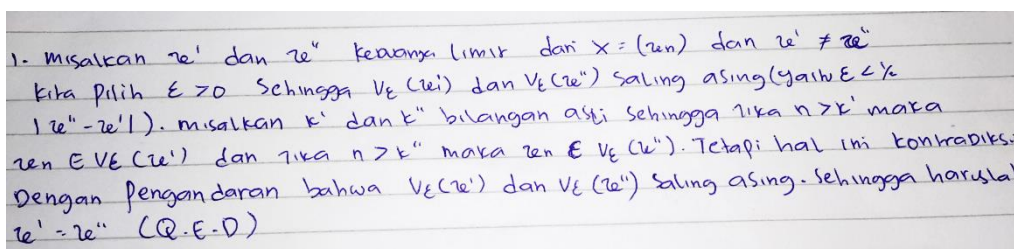 1. misalkan x' dan x" keduanya limit dari X = (xn) dan x' ≠ x"
kita pilih ε > 0 Sehingga Vε (x') dan Vε (x") saling asing (yaitu ε < ½
| x" - x' |). misalkan k' dan k" bilangan asli sehingga jika n > k' maka
xn ∈ Vε (x') dan jika n > k" maka xn ∈ Vε (x"). Tetapi hal ini kontradiks
Dengan Pengandaran bahwa Vε (x') dan Vε (x") Saling asing. Sehingga harusla
x' = x" (Q.E.D)